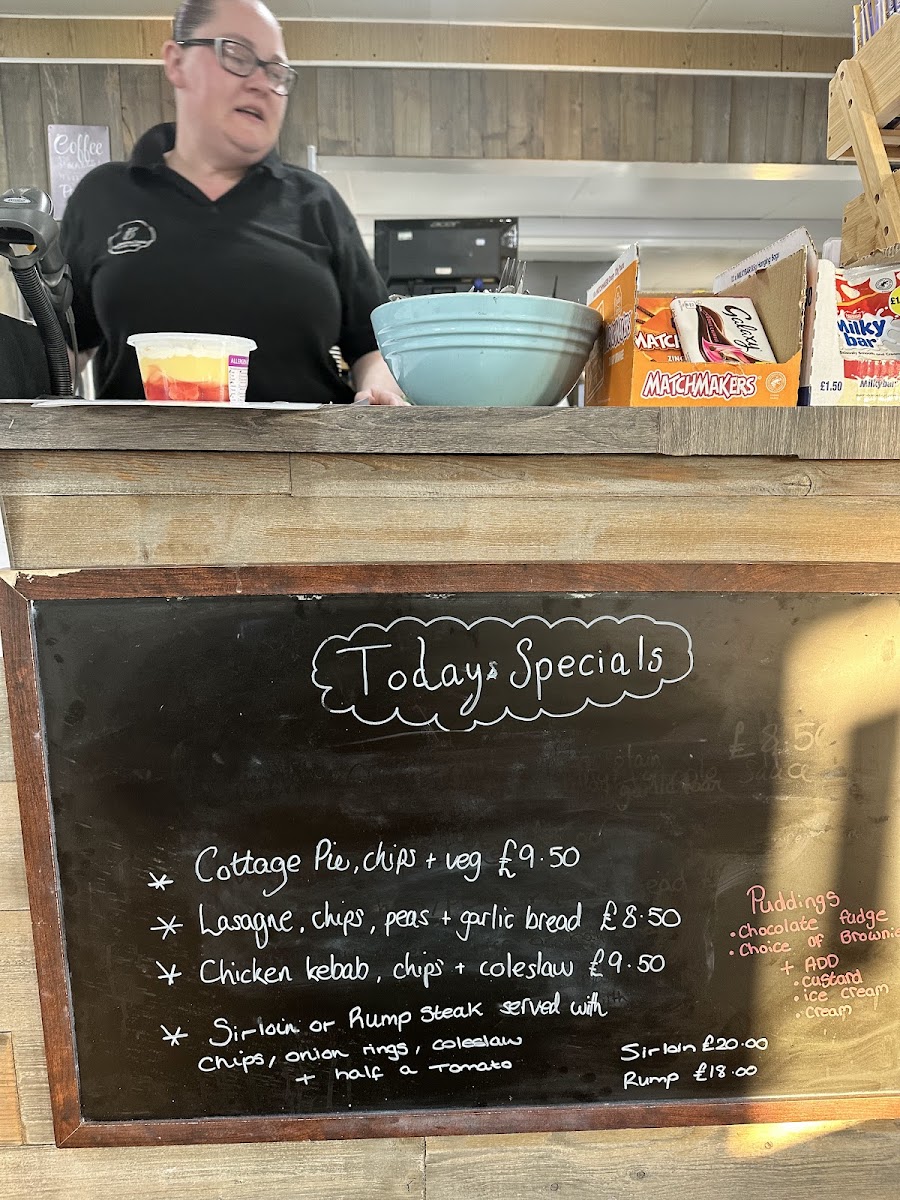 Coffee
acer
ALLERGEN
MATCHMAKERS
Galaxy
MATCHMAKERS
£1.50
Milky
bar
Milkybar
Todays Specials
£8.50
* Cottage Pie, chips + veg £9.50
* Lasagne, chips, peas + garlic bread £8.50
* Chicken kebab, chips + coleslaw £9.50
* Sirloin or Rump Steak served with
chips, onion rings, coleslaw
+ half a Tomato
Sirloin £20.00
Rump £18.00
Puddings
• Chocolate fudge
• Choice of Brownie
+ ADD
• custard
• ice cream
• cream